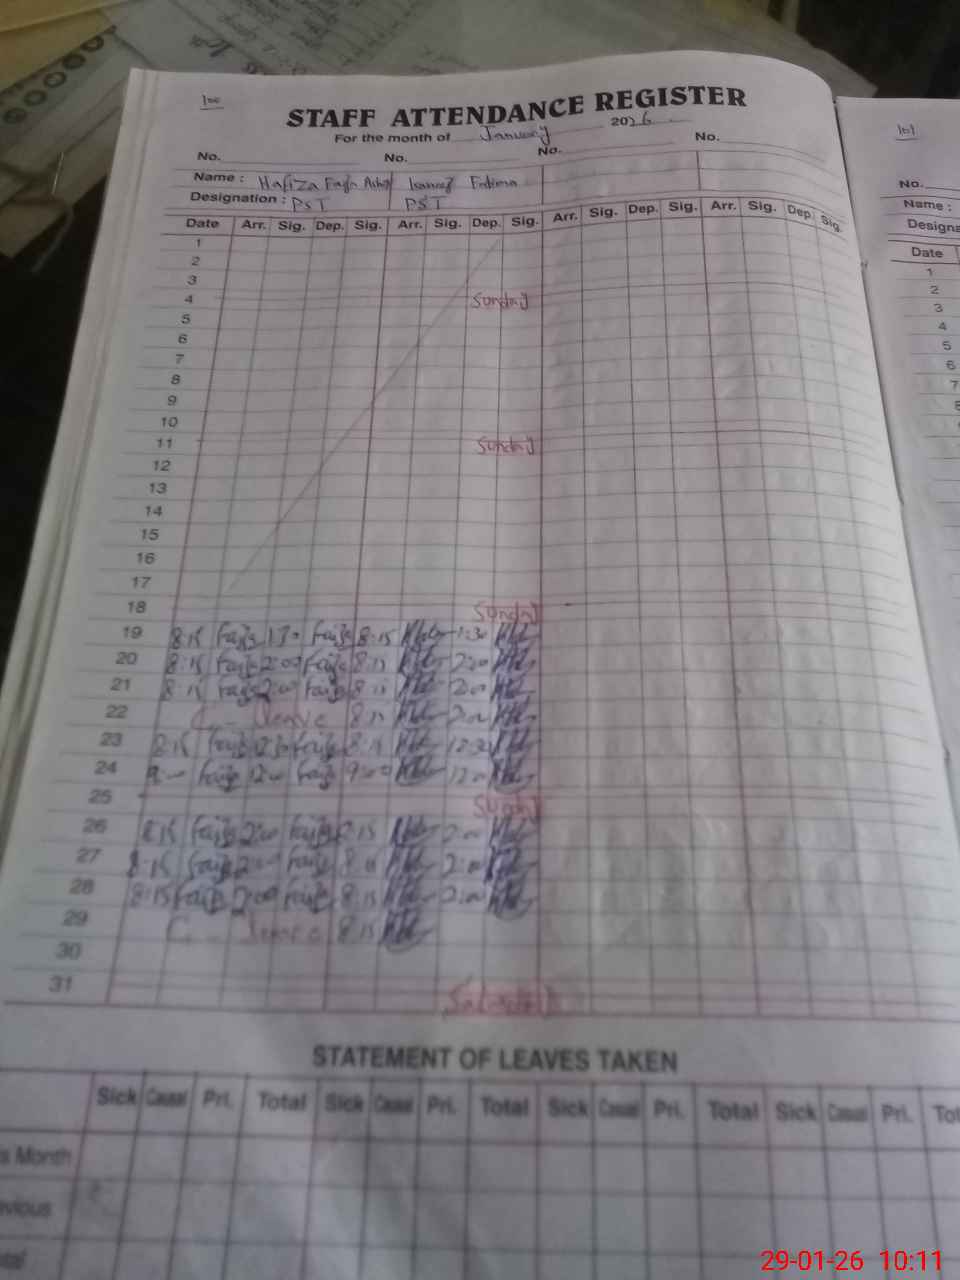 100
STAFF ATTENDANCE REGISTER
For the month of January 2026
No. No. No. No.
Name : Hafiza Faiza Fatima
Designation : PST PST
Date Arr. Sig. Dep. Sig. Arr. Sig. Dep. Sig. Arr. Sig. Dep. Sig. Arr. Sig. Dep. Sig.
1
2
3
4 Sunday
5
6
7
8
9
10
11 Sunday
12
13
14
15
16
17
18 Sunday
19 8:15 1:30 8:15 1:30
20 8:15 2:00 8:15 2:00
21 8:15 2:00 8:15 2:00
22 C Leave 8:15 2:00
23 8:15 12:30 8:15 12:30
24 9:00 12:00 9:00 12:00
25 Sunday
26 8:15 2:00 8:15 2:00
27 8:15 2:00 8:15 2:00
28 8:15 2:00 8:15 2:00
29 C Leave 8:15
30
31
STATEMENT OF LEAVES TAKEN
Sick Casual Pri. Total Sick Casual Pri. Total Sick Casual Pri. Total Sick Casual Pri. Tot
s Month
evious
otal
101
No.
Name :
Designa
Date
1
2
3
4
5
6
7
8
29-01-26 10:11